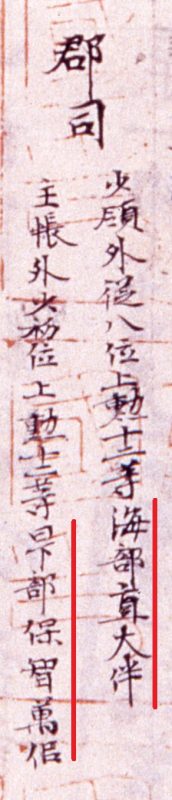 郡司
少領外従八位上勳十二等海部直大伴
主帳外少初位上勳十二等日下部保智萬侶